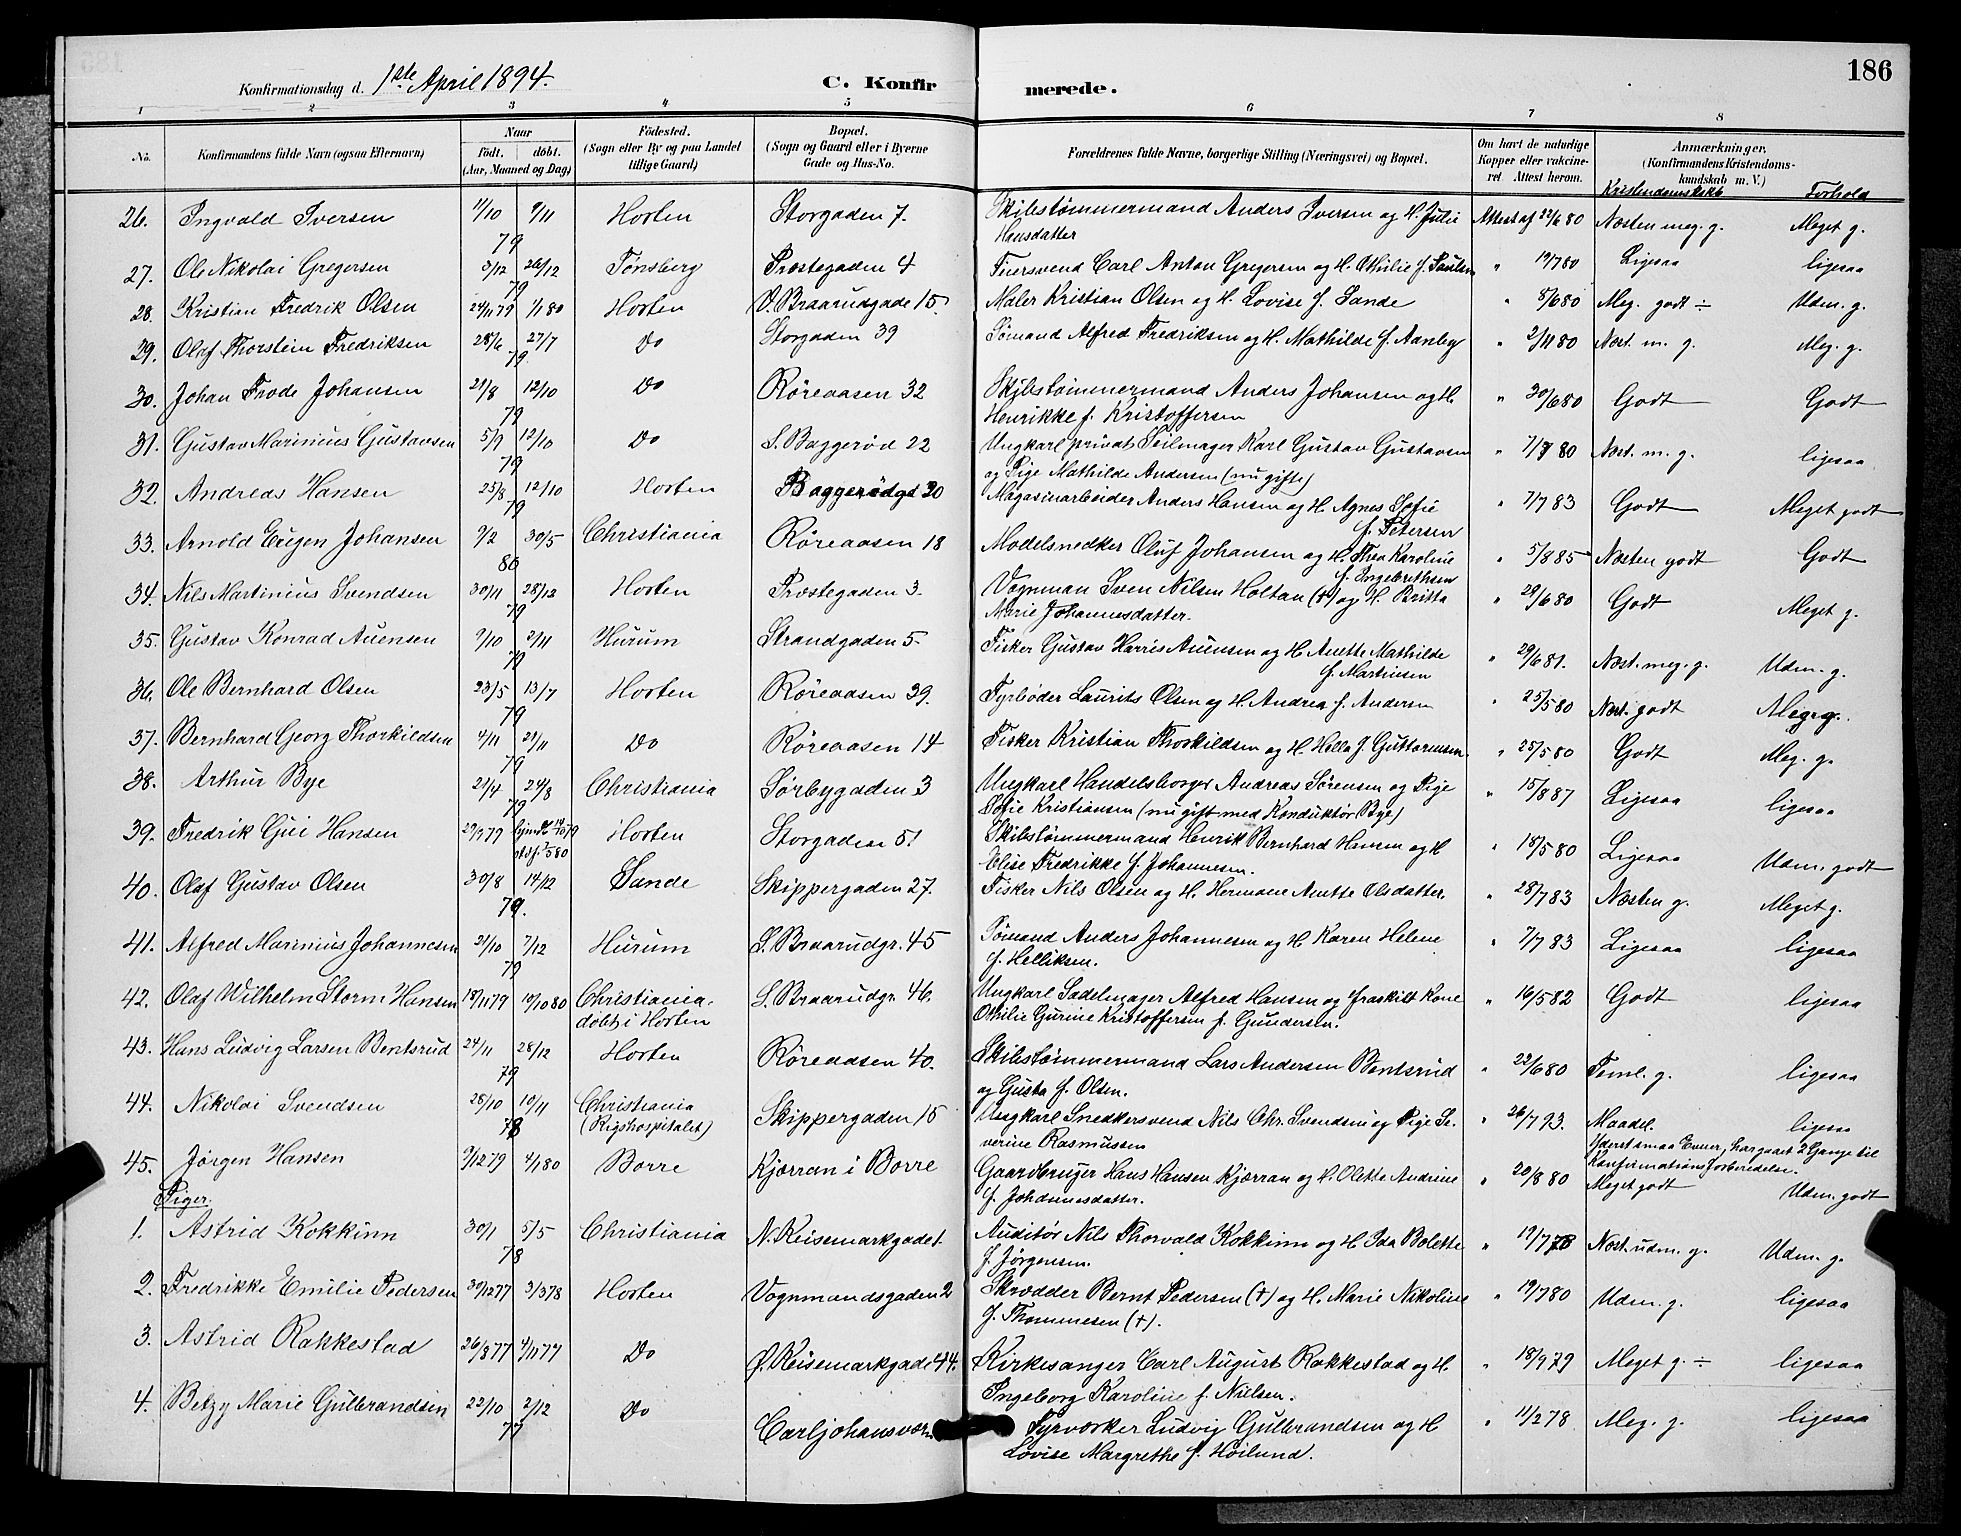 186
Konfirmationsdag d. 1ste April 1894. C. Konfirmerede.
1 2 3 4 5 6 7 8
No. Konfirmandens fulde Navn (ogsaa Efternavn) Naar Födt. döbt. (Aar, Maaned og Dag) Födested. (Sogn eller By og paa Landet tillige Gaard) Bopæl. (Sogn og Gaard eller i Byerne Gade og Hus-No. Forældrenes fulde Navne, borgerlige Stilling (Næringsvei) og Bopæl. Om havt de naturlige Kopper eller vakcineret. Attest herom. Anmærkninger. (Konfirmandens Kristendomskundskab m. V.)
Kristendomskskb Forhold
26. Ingvald Iversen 11/10 9/11 79 Horten Storgaden 7. Skibstømmermand Anders Iversen og H. Julie Attest af 22/6 80 Næsten meg. g. Meget g.
Hansdatter
27. Ole Nikolai Gregersen 5/12 26/12 79 Tønsberg Præstegaden 4 Carl Anton Gregersen og H. Othilie f. Paulsen " 19/7 80 Ligesaa ligesaa
28. Kristian Fredrik Olsen 24/11 79 1/1 80 Horten V. Braarudgade 15. Maler Kristian Olsen og H. Lovise f. Sande " 8/6 80 Meg. godt ÷ Udm. g.
29. Olaf Thorstein Fredriksen 28/6 27/7 79. Do Storgaden 39 Sømand Alfred Fredriksen og H. Mathilde f. Aanby " 2/11 80 Næst. m. g. Meg. g.
30. Johan Frode Johansen 21/8 12/10 79 Do Røreaasen 32 Skibstømmermand Anders Johansen og H. " 30/6 80 Godt Godt
Henrikke f. Kristoffersen
31. Gustav Marinius Gustavsen 5/9 12/10 79 Do S. Baggerød 22 Ungkarl privat Seilmager Karl Gustav Gustavsen " 7/7 80 Næst. m. g. ligesaa
og Pige Mathilde Andersen (nu gifte)
32. Andreas Hansen 25/8 12/10 79 Horten Baggerødgd 30 Magasinarbeider Anders Hansen og H. Agnes Sofie " 7/7 83 Godt Meget godt
f. Petersen
33. Arnold Eugen Johansen 9/2 30/5 80 Christiania Røreaasen 18 Modelsnedker Oluf Johansen og H. Thea Karoline " 5/8 85 Næsten godt Godt
f. Ingebrethsen
34. Nils Martinius Svendsen 30/11 28/12 79 Horten Præstegaden 3. Vognman Sven Nilsen Holtan (+) og H. Britta " 29/6 80 Godt Meget g.
Marie Johannesdatter.
35. Gustav Konrad Auensen 9/10 2/11 79 Hurum Strandgaden 5. Fisker Gustav Harris Auensen og H Anette Mathilde " 29/6 81. Næst. meg. g. Udm. g.
f. Martinsen
36. Ole Bernhard Olsen 23/5 13/7 79 Horten Røreaasen 39. Fyrbøder Laurits Olsen og H. Andrea f. Andersen " 25/5 80 Næst. godt Meg. g.
37. Bernhard Georg Thorkildsen 4/11 21/11 79 Do Røreaasen 14 Fisker Kristian Thorkildsen og H. Hella f. Guttormsen. " 25/5 80 Godt Meg. g.
38. Arthur Bye 21/4 24/8 79 Christiania Sørbygaden 3 Ungkarl Handelsborger Andreas Sørensen og Pige " 15/8 87 Ligesaa ligesaa
Sofie Kristiansen (nu gift med Konduktør Bye)
39. Fredrik Gui Hansen 29/9 79 Horten Storgaden 51 Skibstømmermand Henrik Bernhard Hansen og H " 18/5 80 Ligesaa Udm. godt
Elise Fredrikke f. Johannesen.
40. Olaf Gustav Olsen 30/8 14/12 79. Sande Skippergaden 27. Fisker Nils Olsen og H. Hermane Anette Olsdatter. " 28/7 83 Næsten g. Meget g.
41. Alfred Marinius Johannesen 21/10 7/12 79 Hurum S. Braarudgr. 45 Sømand Anders Johannesen og H Karen Helene " 7/7 83 Ligesaa ligesaa
f. Helliksen.
42. Olaf Wilhelm Storm Hansen 18/11 79 10/10 80 Christiania. S. Braarudgr. 46. Ungkarl Sadelmager Alfred Hansen og fraskilt Kone " 16/5 82 Godt ligesaa
døbt i Horten Othilie Gurine Kristoffersen f. Gundersen.
43. Hans Ludvig Larsen Bentsrud 24/11 28/12 79 Horten Røreaasen 40. Skibstømmermand Lars Andersen Bentsrud " 22/6 80 Teml. g. ligesaa
og Gusta f. Olsen.
44. Nikolai Svendsen 28/10 10/11 78 Christiania Skippergaden 15 Ungkarl Snedkersvend Nils Chr. Svendsen og Pige Se- " 26/7 93. Maadel. ligesaa
(Rigshospitalet) verine Rasmussen Yderst smaa Evner, har gaaet 2 Gange til
Konfirmationsforberedelse.
45. Jørgen Hansen 9/12 79 4/1 80 Borre Kjærran i Borre Gaardbruger Hans Hansen Kjærran og H. Olette Andrine " 20/8 80 Meget godt Udm. godt
f. Johannesdatter.
Piger.
1. Astrid Kokkinn 30/1 5/5 78 Christiania N. Keisemarkgade 1. Auditør Nils Thorvald Kokkinn og H Ida Bolette " 19/7 78 Næst. udm. g. Udm. g.
f. Jørgensen.
2. Fredrikke Emilie Pedersen 30/12 77 3/3 78 Horten Vognmandsgaden 2 Skrædder Bernt Pedersen (+) og H. Marie Nikoline " 19/7 80 Udm. g. ligesaa
f. Thommesen (+).
3. Astrid Rakkestad 26/8 77 4/11 77 Do Ø. Keisemarkgade 44. Kirkesanger Carl August Rakkestad og H. " 18/9 79 Meget g. ÷ ligesaa
Ingeborg Karoline f. Nielsen.
4. Betzy Marie Gulbrandsen 22/10 2/12 77 Do Carljohansværn Fyrværker Ludvig Gulbrandsen og H " 11/2 78 Meg. g. ligesaa
Lovise Margrethe f. Høilund.